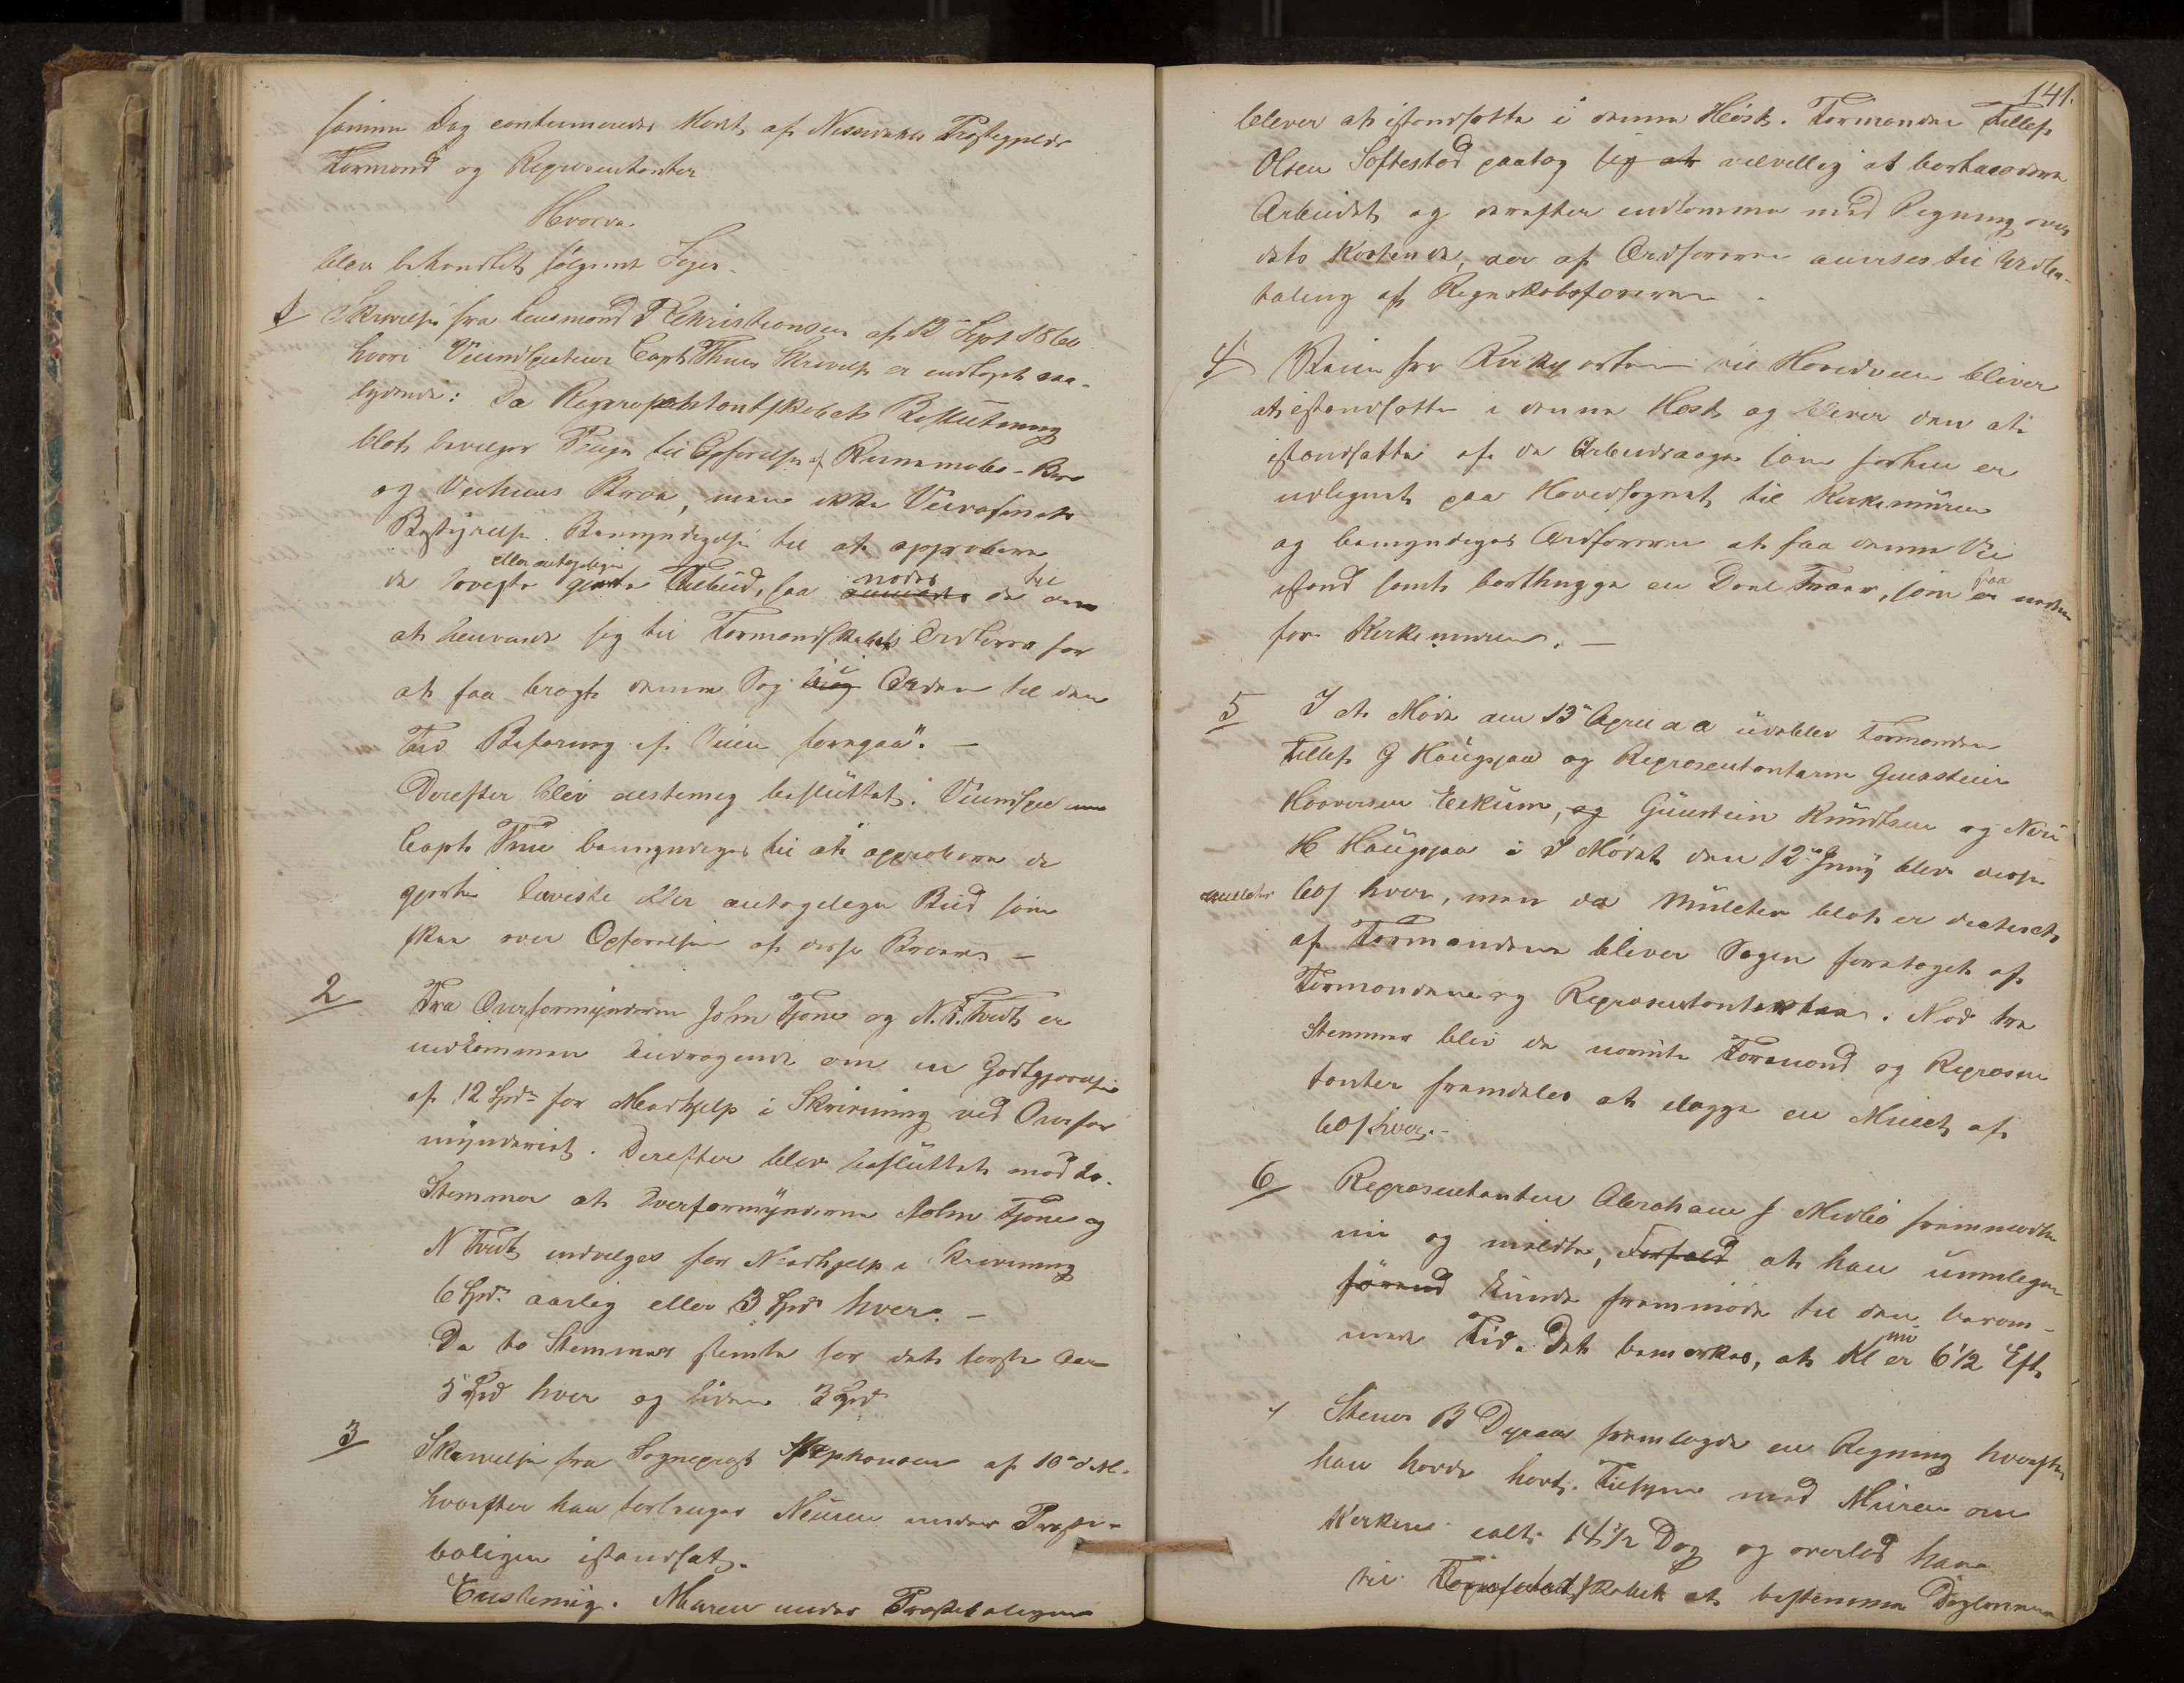 samme Dag contiunueredes Mødet af Nissedals Præstegjelds
Formænd og Repræsentanter
Hvorvæ
blev behandlet følgende Sager.
1 Skrivelse fra Lensmand P Christiansen af 12 Sept 1860
hvori Veiinspecteur Capt Thues Skrivelse er indtaget saa-
lydende: Da Repræsentantskabets Beslutning
blot bevilger Penge til Opførelse af Rummebs-Bro
og Veihuus Broen, men ikke Veivæsenets
Bestyrelse Bemyndigelse til at approbere
de laveste gjorte eller antagelige Tilbud, saa nødes de til
at henvende sig til Formandskabets Ordfører for
at faa bragt denne Sag i Orden til den
Tid Befaring af Veien foregaa". —
Derefter blev eenstemig besluttet: Veiinspecteur
Capt Thue bemyndiges til at approbere de
gjorte laveste eller antagelige Bud som
skee over Opførelsen af disse Broer —
2 Fra Overformynderne John Tjone og N. T. Tvedt er
indkommen Andragende om en Godtgjørelse
af 12 Spd for Medhjelp i Skrivning ved Overfor
mynderiet. Derefter blev besluttet mod to
Stemmer at Overformynderne John Tjone og
N Tvedt indvilges for Medhjelp i Skrivning
6 Spd. aarlig eller 3 Spd hver. —
Da to Stemmer stemte for det første Aar
5 Spd hver og siden 3 Spd
3 Skrivelse fra Sogneprest Stephansen af 10de d.M.
hvorefter han forlanger Muren under Præste-
boligen istandsat.
Enstemig. Muren under Præsteboligen
141.
bliver at istandsætte i denne Høst. Formanden Tellef
Olsen Softestad paatog sig at velvillig at bortaccordere
Arbeidet og derefter indkomme med Regning over
dets Kostende, der af Ordføreren anvises til Udbe-
taling af Regnskabsføreren.
4 Veien fra Kirken til Hovedveien bliver
at istandsætte i denne Høst og bliver den at
istandsætte af de Arbeidsdage som forhen er
udlignet paa Hovedsognet til Kirkemuren
og bemyndiges Ordføreren at faa denne Vei
istand samt borthugge en Deel Træer, som er faa neden
for Kirkemuren. —
5 I et Møde den 13de April d a udeblev Formanden
Tellef G Haugsjaa og Repræsentanterne Gunstein
Hoversen Eekum, og Gunstein Knudsen og Neri
H Haugsjaa i Mødet den 12te Juny blev disse
mulcteret 60 s hver, men da Mulcten blot er dicteret
af Formændene bliver Sagen foretaget af
Formændene og Repræsentanterne. Mod tre
Stemmer blev de nævnte Formænd og Repræsen
tanter fremdeles at ilægge en Mulct af
60 s hver.—
6 Repræsentanten Abraham J Midbø fremmødte
nu og meldte, Forfald at han umuelegen
førend kunde fremmøde til den beram-
mede Tid. Det bemærkes, at Kl nu er 6 1/2 Eft.
7 Steener B Dyraa fremlagde en Regning hvorefter
han havde havt Tilsyn med Muren om
Kirken ialt 14 1/2 Dag og overlod han
til Repræsentantskabet at bestemme Daglønnen